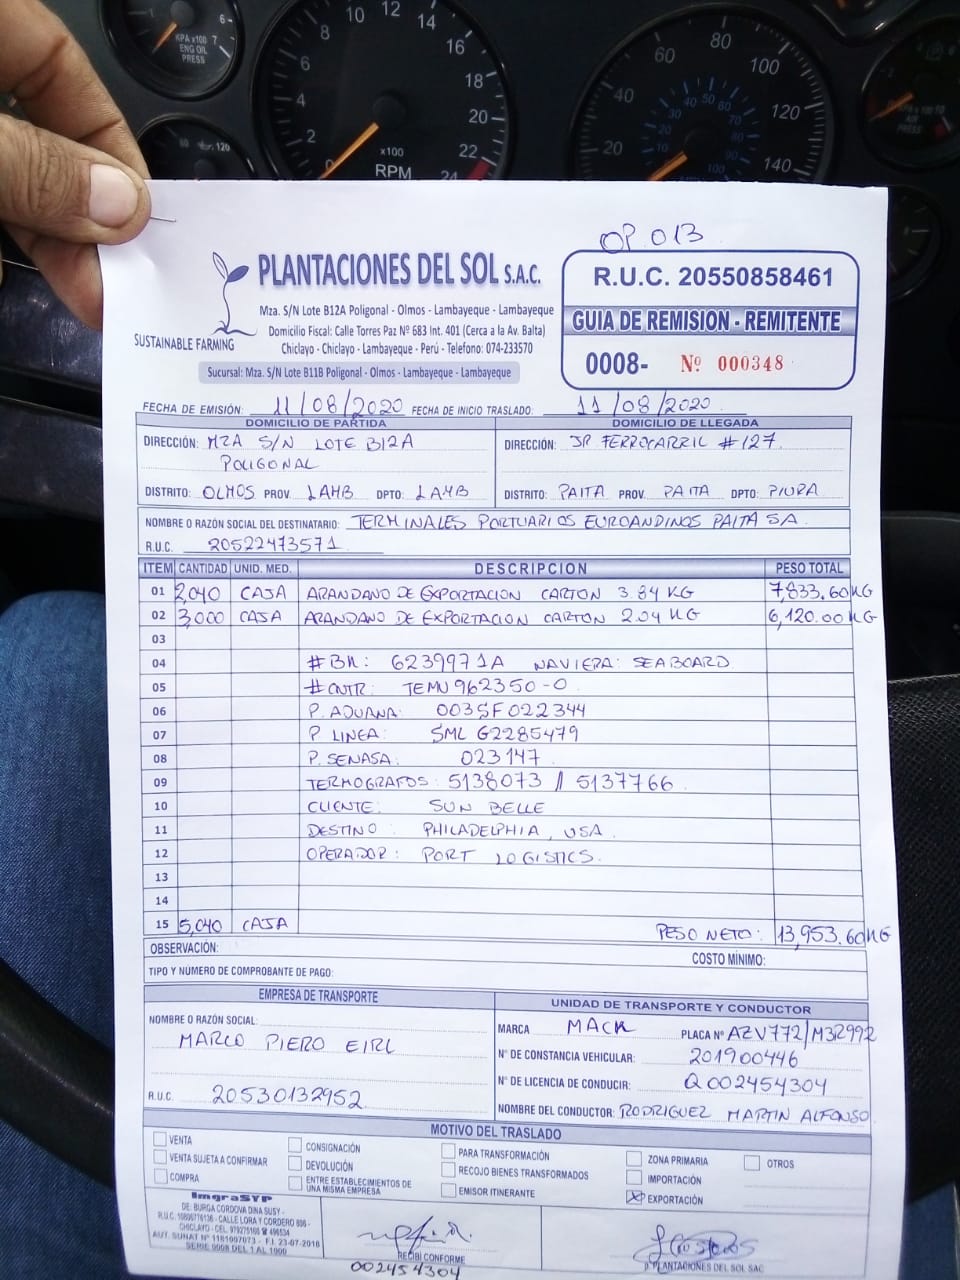 10 12 14
8 16
6 18
4 20
2 22
0 24
x100
RPM
6
KPA x100 7
ENG OIL
PRESS
120
20 40 60 80 100 120 140
AIR
PRESS
OP. 013
PLANTACIONES DEL SOL S.A.C.
Mza. S/N Lote B12A Poligonal - Olmos - Lambayeque - Lambayeque
Domicilio Fiscal: Calle Torres Paz Nº 683 Int. 401 (Cerca a la Av. Balta)
Chiclayo - Chiclayo - Lambayeque - Perú - Telefono: 074-233570
SUSTAINABLE FARMING
Sucursal: Mza. S/N Lote B11B Poligonal - Olmos - Lambayeque - Lambayeque
R.U.C. 20550858461
GUIA DE REMISION - REMITENTE
0008- Nº 000348
FECHA DE EMISIÓN: 11/08/2020 FECHA DE INICIO TRASLADO: 11/08/2020
DOMICILIO DE PARTIDA
DIRECCIÓN: MZA S/N LOTE B12A
POLIGONAL
DISTRITO: OLMOS PROV. LAMB DPTO: LAMB
DOMICILIO DE LLEGADA
DIRECCIÓN: JR FERROCARRIL #127
DISTRITO: PAITA PROV. PAITA DPTO: PIURA
NOMBRE O RAZÓN SOCIAL DEL DESTINATARIO: TERMINALES PORTUARIOS EUROANDINOS PAITA SA
R.U.C. 20522473571
ITEM CANTIDAD UNID. MED. DESCRIPCION PESO TOTAL
01 2,040 CAJA ARANDANO DE EXPORTACION CARTON 3.84 KG 7,833.60 KG
02 3,000 CAJA ARANDANO DE EXPORTACION CARTON 2.04 KG 6,120.00 KG
03
04 #BK: 6239971A NAVIERA: SEABOARD
05 #CNTR: TEMU962350-0
06 P. ADUANA: 003SF022344
07 P LINEA: SML G2285479
08 P. SENASA: 023147
09 TERMOGRAFOS: 5138073 // 5137766
10 CLIENTE: SUN BELLE
11 DESTINO: PHILADELPHIA, USA.
12 OPERADOR: PORT LOGISTICS.
13
14
15 5,040 CAJA PESO NETO: 13,953.60 KG
OBSERVACIÓN: COSTO MÍNIMO:
TIPO Y NÚMERO DE COMPROBANTE DE PAGO:
EMPRESA DE TRANSPORTE
NOMBRE O RAZÓN SOCIAL:
MARCO PIERO EIRL
R.U.C. 20530132952
UNIDAD DE TRANSPORTE Y CONDUCTOR
MARCA MACK PLACA Nº AZV772/M3R992
Nº DE CONSTANCIA VEHICULAR: 201900446
Nº DE LICENCIA DE CONDUCIR: Q002454304
NOMBRE DEL CONDUCTOR: RODRIGUEZ MARTIN ALFONSO
MOTIVO DEL TRASLADO
VENTA CONSIGNACIÓN PARA TRANSFORMACIÓN ZONA PRIMARIA OTROS
VENTA SUJETA A CONFIRMAR DEVOLUCIÓN RECOJO BIENES TRANSFORMADOS IMPORTACIÓN
COMPRA ENTRE ESTABLECIMIENTOS DE UNA MISMA EMPRESA EMISOR ITINERANTE EXPORTACIÓN
ImgraSYP
DE: BURGA CORDOVA DINA SUSY -
CALLE LORA Y CORDERO
AUT. SUNAT Nº 1181097073 - F.I. 23-07-2018
SERIE 0008 DEL 1 AL 1000
RECIBÍ CONFORME
002454304
P. PLANTACIONES DEL SOL SAC